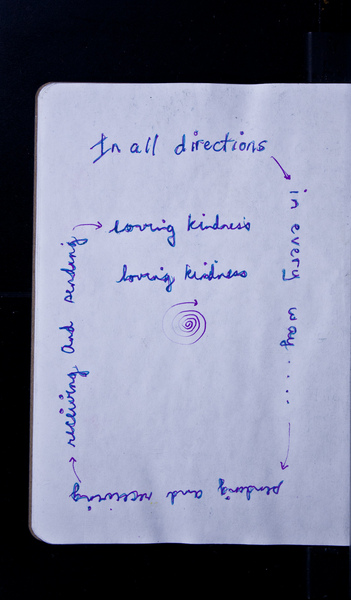 In all directions
in every way.....
sending and receiving
receiving and sending
loving kindness
loving kindness